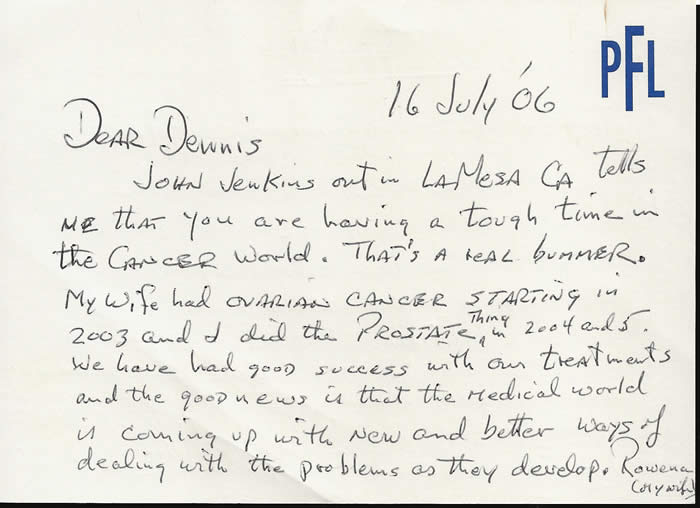 PFL
16 July '06
Dear Dennis
John Jenkins out in LaMesa CA tells
me that you are having a tough time in
the Cancer world. That's a real bummer.
My wife had ovarian cancer starting in
2003 and I did the Prostate Thing in 2004 and 5.
We have had good success with our treatments
and the good news is that the medical world
is coming up with new and better ways of
dealing with the problems as they develop. Rowena
(my wife)